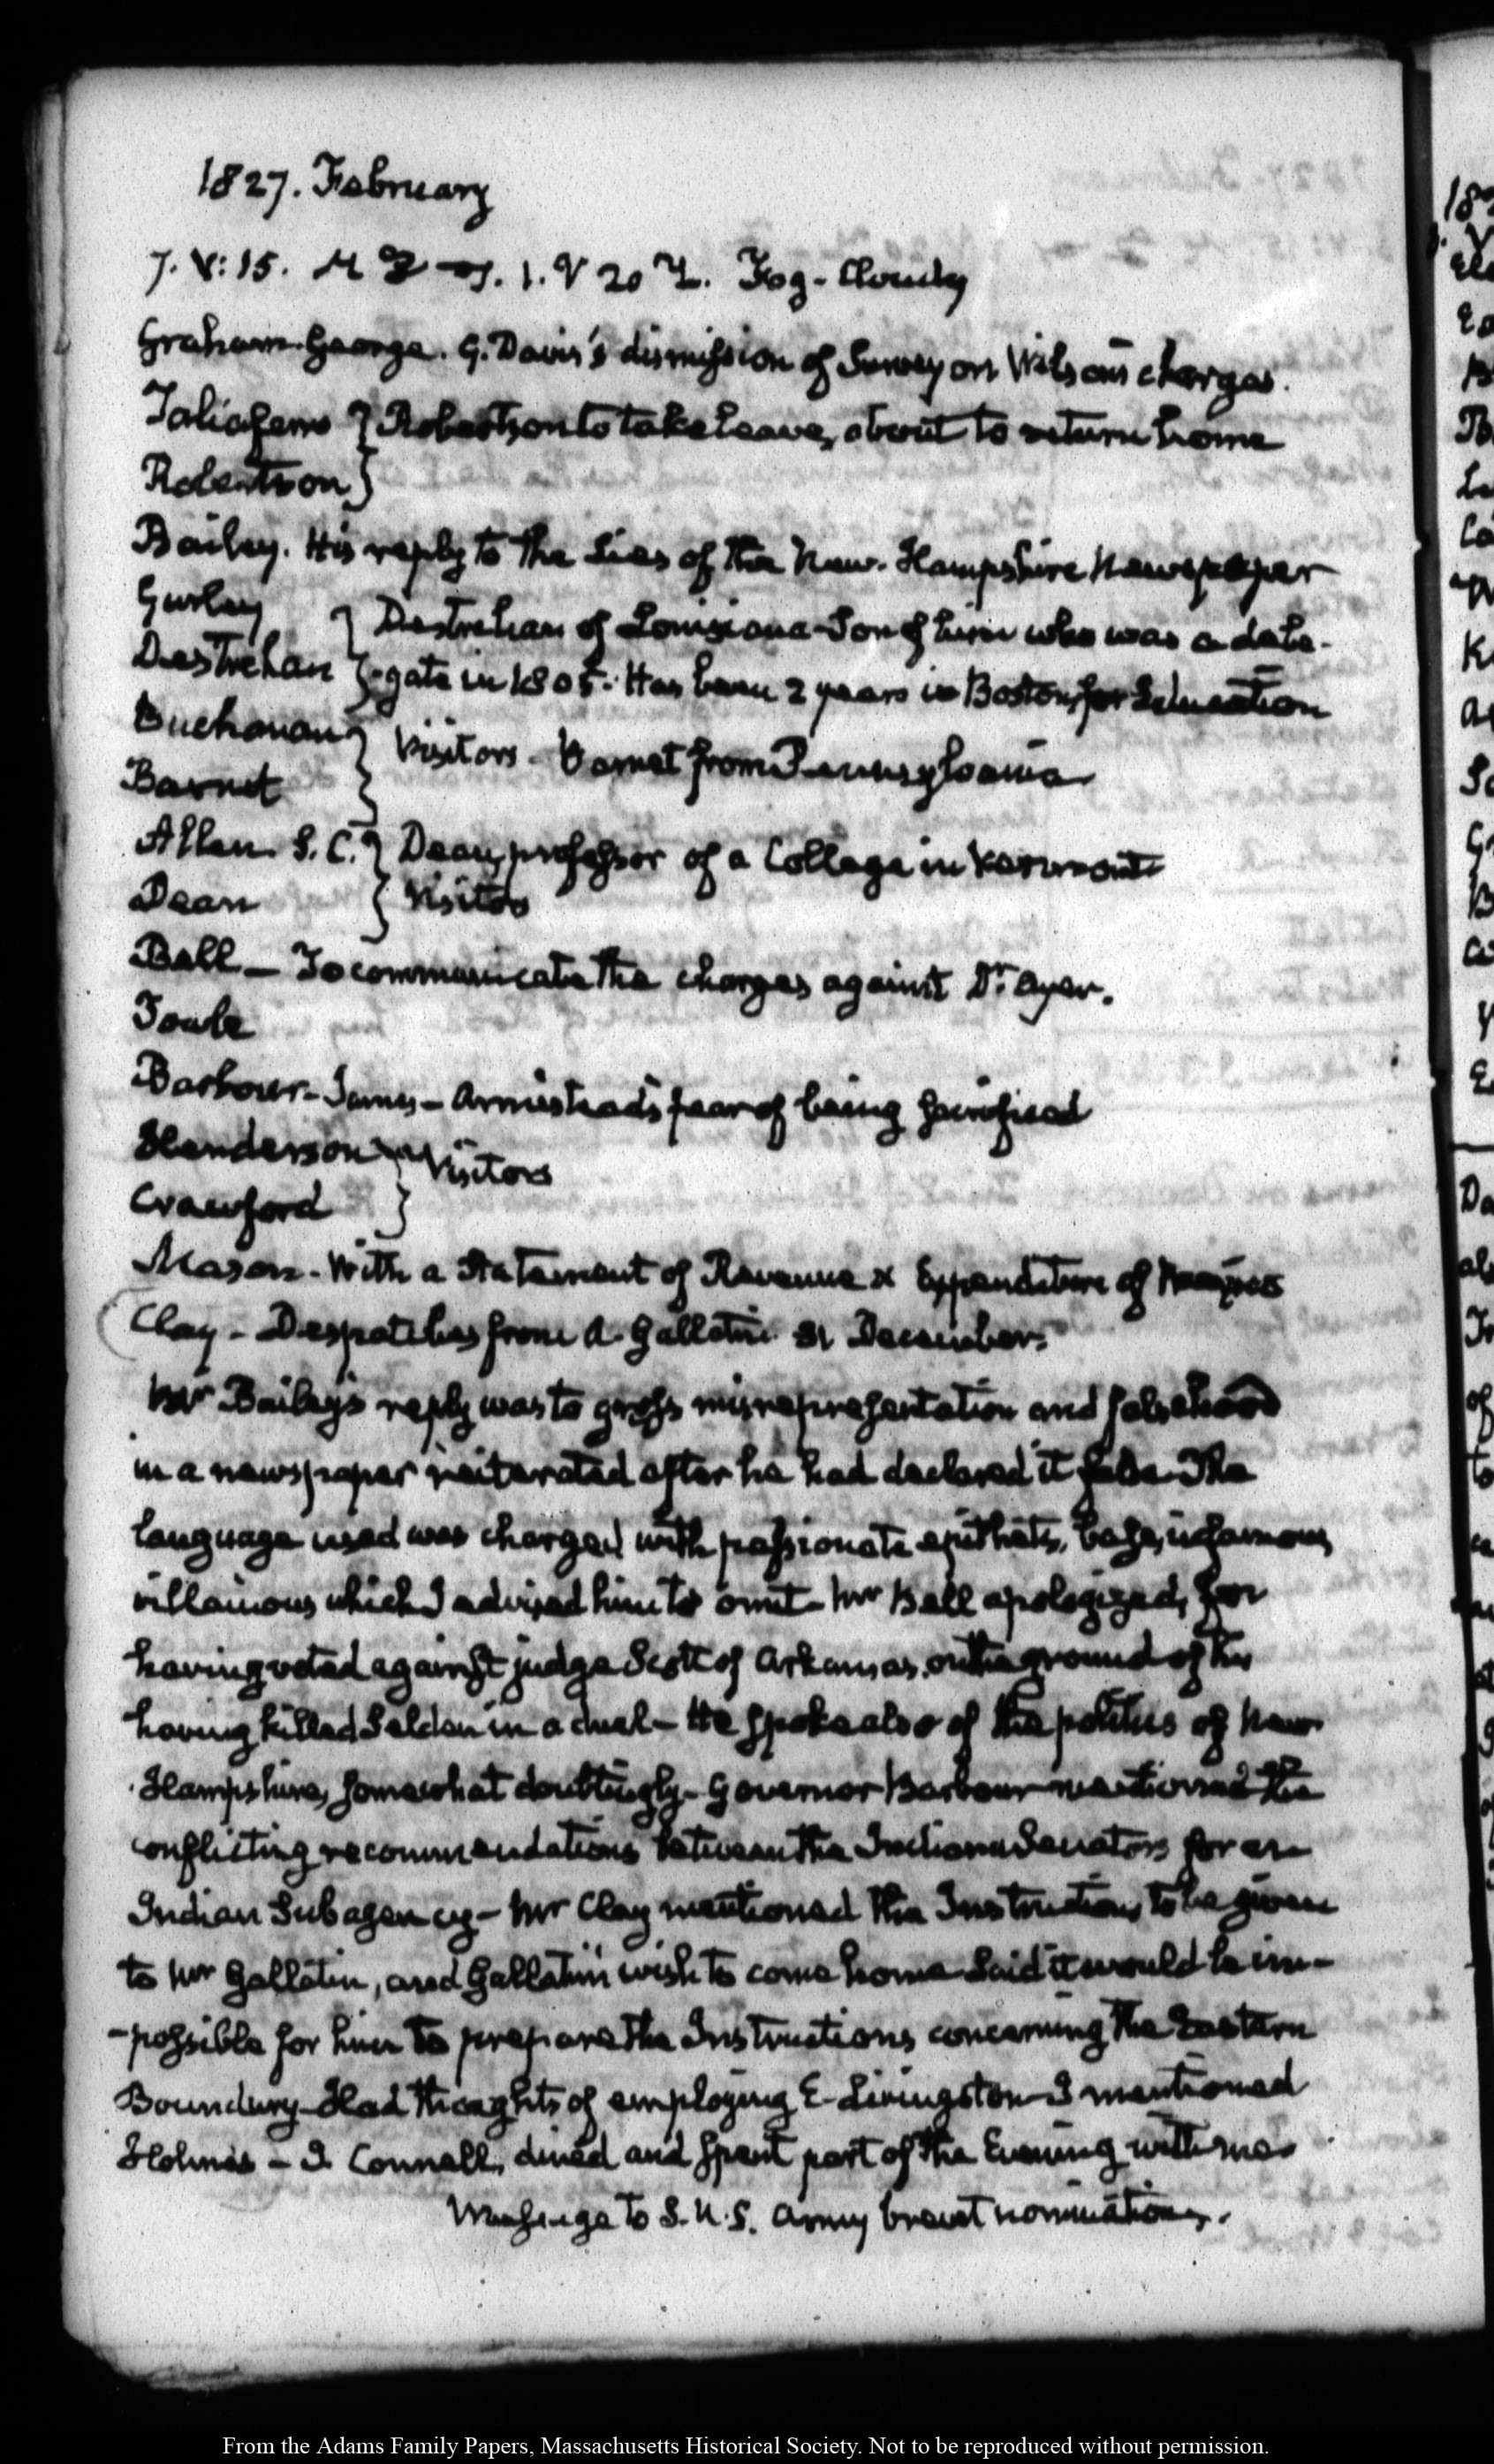 1827. February
7. V: 15. I. V 20 Fog - Cloudy
Graham George. G. Davis's dismission of Survey on Wilson's charges.
Taliaferro } Robertson to take leave, about to return home
Robertson }
Bailey. His reply to the Lies of the New-Hampshire Newspaper
Gurley } Destrehan of Louisiana Son of him who was a dele-
Destrehan } -gate in 1805. Has been 2 years in Boston, for Education
Buchanan } Visitors - Barnet from Pennsylvania
Barnet }
Allen. S. C. } Dean, professor of a College in Vermont
Dean } Visitors
Bell - To communicate the charges against Dr. Ayer.
Towle
Barbour - James - Armistead's fear of being sacrificed
Henderson } Visitors
Crawford }
Mason - With a Statement of Revenue & Expenditure of
Clay - Despatches from A. Gallatin 21 December.
Mr Bailey's reply was to gross misrepresentation and falsehood
in a newspaper reiterated after he had declared it false. The
language used was charged with passionate epithets, base, infamous
villainous which I advised him to omit - Mr Bell apologized, for
having voted against judge Scott of Arkansas, on the ground of his
having killed Selden in a duel - He spoke also of the politics of New
Hampshire, somewhat doubtingly - Governor Barbour mentioned the
conflicting recommendations between the Indiana Senators for an
Indian Subagency - Mr Clay mentioned the Instructions to be given
to Mr Gallatin, and Gallatin's wish to come home Said it would be im-
-possible for him to prepare the Instructions concerning the Eastern
Boundary Had thoughts of employing E. Livingston I mentioned
Holmes - J. Connell, dined and spent part of the Evening with me.
Message to S. U. S. Army brevet nominations.
From the Adams Family Papers, Massachusetts Historical Society. Not to be reproduced without permission.